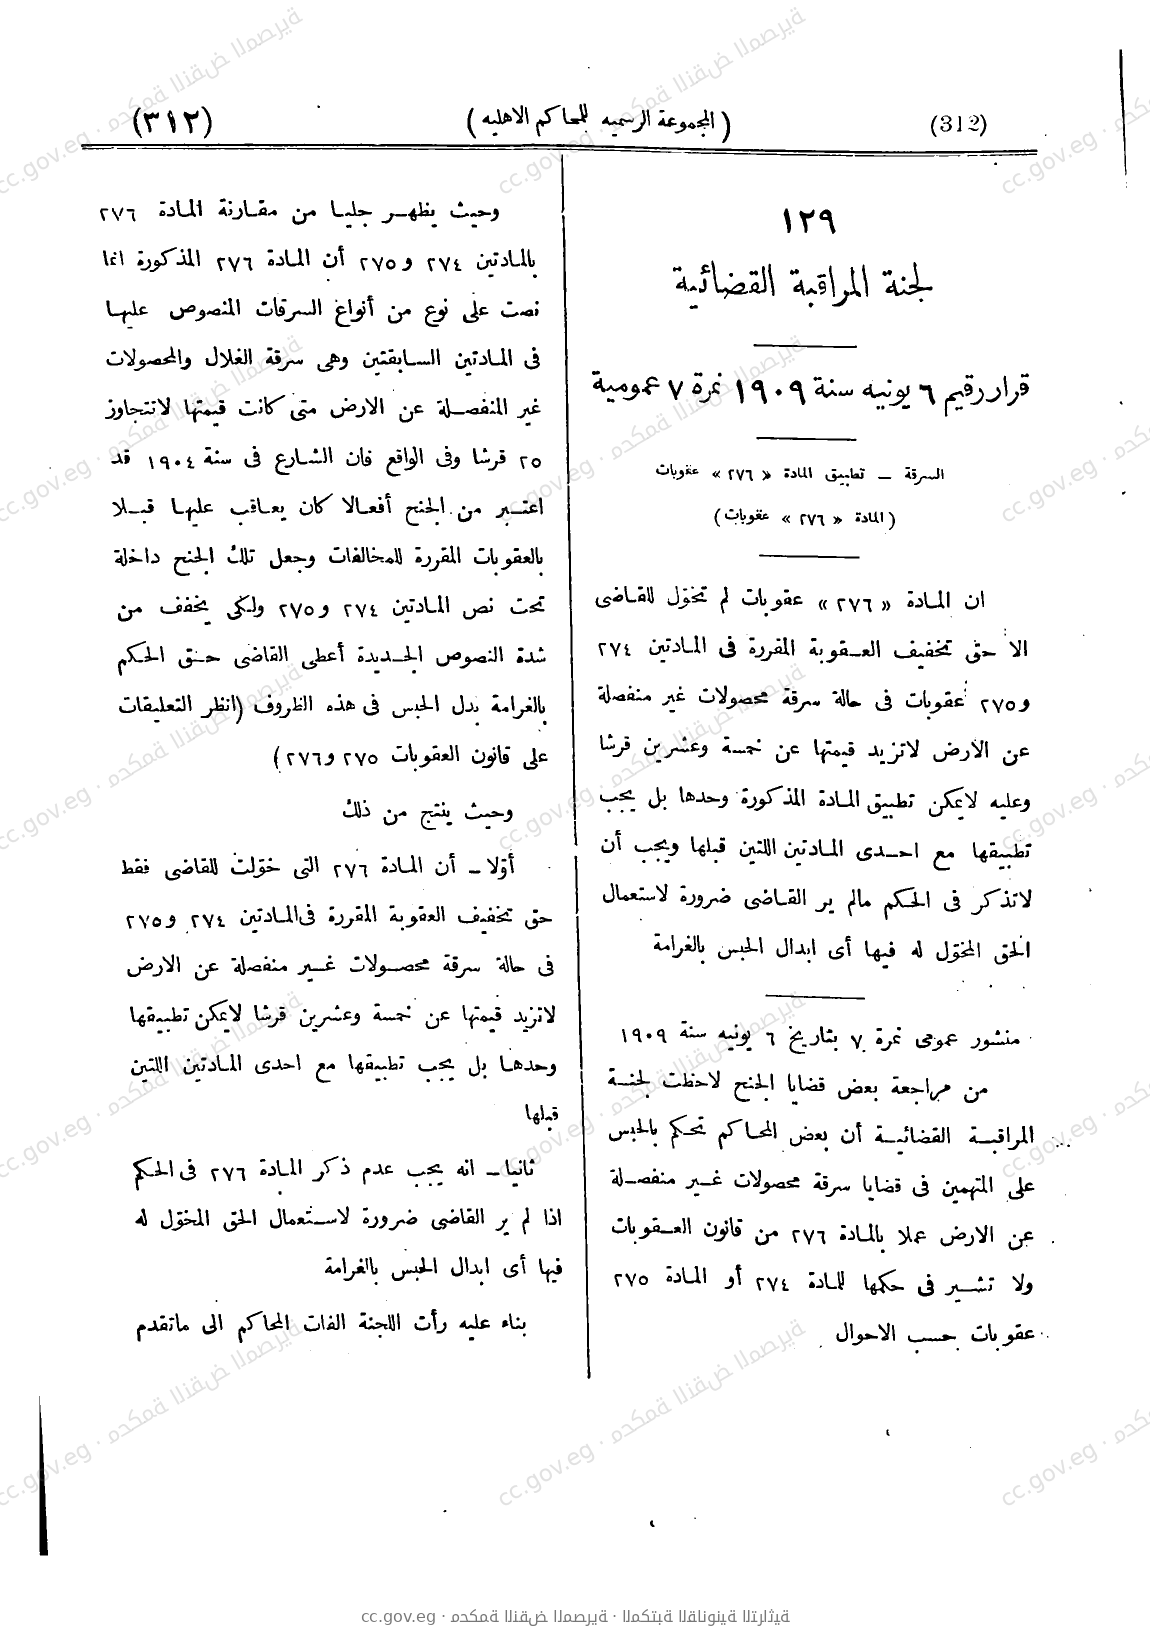 (312)
(المجموعة الرسميه للمحاكم الاهليه)
(٣١٢)
١٢٩
لجنة المراقبة القضائية
قرار رقيم ٦ يونيه سنة ١٩٠٩ نمرة ٧ عمومية
السرقة – تطبيق المادة «٢٧٦» عقوبات
(المادة «٢٧٦» عقوبات)
ان المادة «٢٧٦» عقوبات لم تخوّل للقاضى
الا حق تخفيف العقوبة المقررة فى المادتين ٢٧٤
و٢٧٥ عقوبات فى حالة سرقة محصولات غير منفصلة
عن الارض لاتزيد قيمتها عن خمسة وعشرين قرشا
وعليه لايمكن تطبيق المادة المذكورة وحدها بل يجب
تطبيقها مع احدى المادتين اللتين قبلها ويجب أن
لاتذكر فى الحكم مالم ير القاضى ضرورة لاستعمال
الحق المخوّل له فيها أى ابدال الحبس بالغرامة
منشور عمومى نمرة ٧ بتاريخ ٦ يونيه سنة ١٩٠٩
من مراجعة بعض قضايا الجنح لاحظت لجنة
المراقبة القضائية أن بعض المحاكم تحكم بالحبس
على المتهمين فى قضايا سرقة محصولات غير منفصلة
عن الارض عملا بالمادة ٢٧٦ من قانون العقوبات
ولا تشير فى حكمها للمادة ٢٧٤ أو المادة ٢٧٥
عقوبات حسب الاحوال
وحيث يظهر جليا من مقارنة المادة ٢٧٦
بالمادتين ٢٧٤ و٢٧٥ أن المادة ٢٧٦ المذكورة انما
نصت على نوع من أنواع السرقات المنصوص عليها
فى المادتين السابقتين وهى سرقة الغلال والمحصولات
غير المنفصلة عن الارض متى كانت قيمتها لاتتجاوز
٢٥ قرشا وفى الواقع فان الشارع فى سنة ١٩٠٤ قد
اعتبر من الجنح أفعالا كان يعاقب عليها قبلا
بالعقوبات المقررة للمخالفات وجعل تلك الجنح داخلة
تحت نص المادتين ٢٧٤ و٢٧٥ ولكى يخفف من
شدة النصوص الجديدة أعطى القاضى حق الحكم
بالغرامة بدل الحبس فى هذه الظروف (انظر التعليقات
على قانون العقوبات ٢٧٥ و٢٧٦)
وحيث ينتج من ذلك
أوّلا – أن المادة ٢٧٦ التى خوّلت للقاضى فقط
حق تخفيف العقوبة المقررة فى المادتين ٢٧٤ و٢٧٥
فى حالة سرقة محصولات غير منفصلة عن الارض
لاتزيد قيمتها عن خمسة وعشرين قرشا لايمكن تطبيقها
وحدها بل يجب تطبيقها مع احدى المادتين اللتين
قبلها
ثانيا – انه يجب عدم ذكر المادة ٢٧٦ فى الحكم
اذا لم ير القاضى ضرورة لاستعمال الحق المخوّل له
فيها أى ابدال الحبس بالغرامة
بناء عليه رأت اللجنة الفات المحاكم الى ماتقدم
cc.gov.eg · محكمة النقض المصرية · المكتبة القانونية التراثية